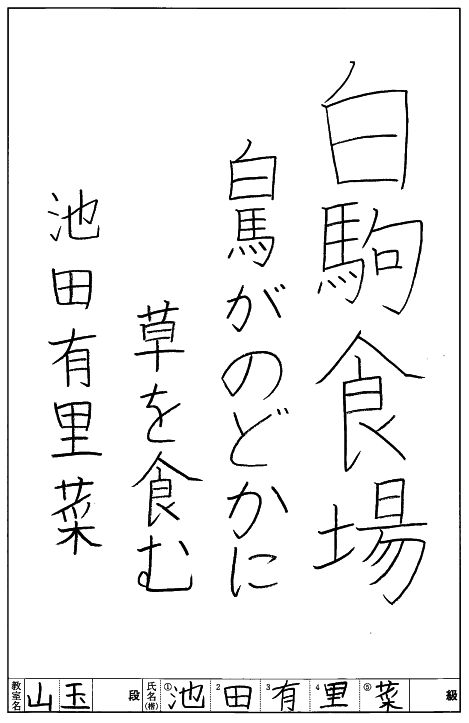 白駒食場
白馬がのどかに
草を食む
池田有里菜
教室名 山玉 段 氏名(楷) ①池 2田 3有 4里 ⑤菜 級